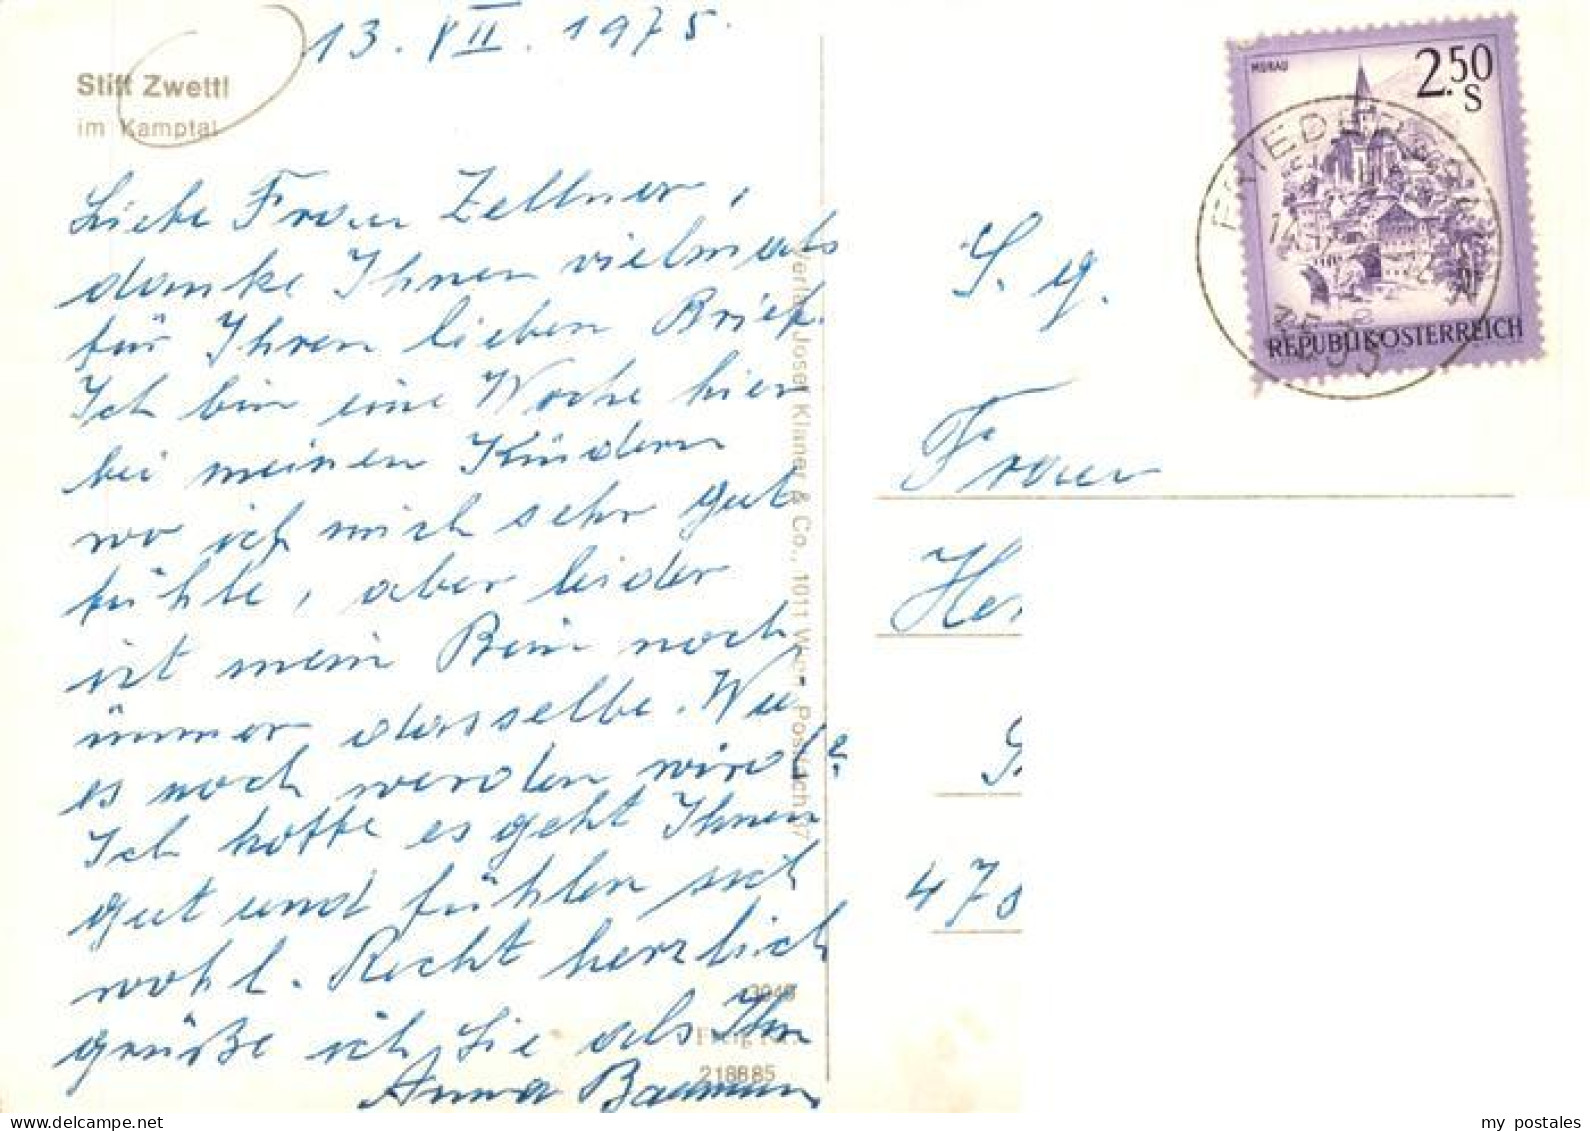 13. VII. 1975.
Stift Zwettl
im Kamptal
Liebe Frau Zellner,
danke Ihnen vielmals
für Ihren lieben Brief.
Ich bin eine Woche hier
bei meinen Kindern
wo ich mich sehr gut
fühle, aber leider
ist mein Bein noch
immer dasselbe. Wie
es noch werden wird?
Ich hoffe es geht Ihnen
gut und fühlen sich
wohl. Recht herzlich
grüße ich Sie als Ihre
Anna Baumann
Verlag Josef Klaner & Co., 1011 Wien, Postfach 37
218885
MURAU
2.50
S
REPUBLIK ÖSTERREICH
S. g.
Frau
my postales